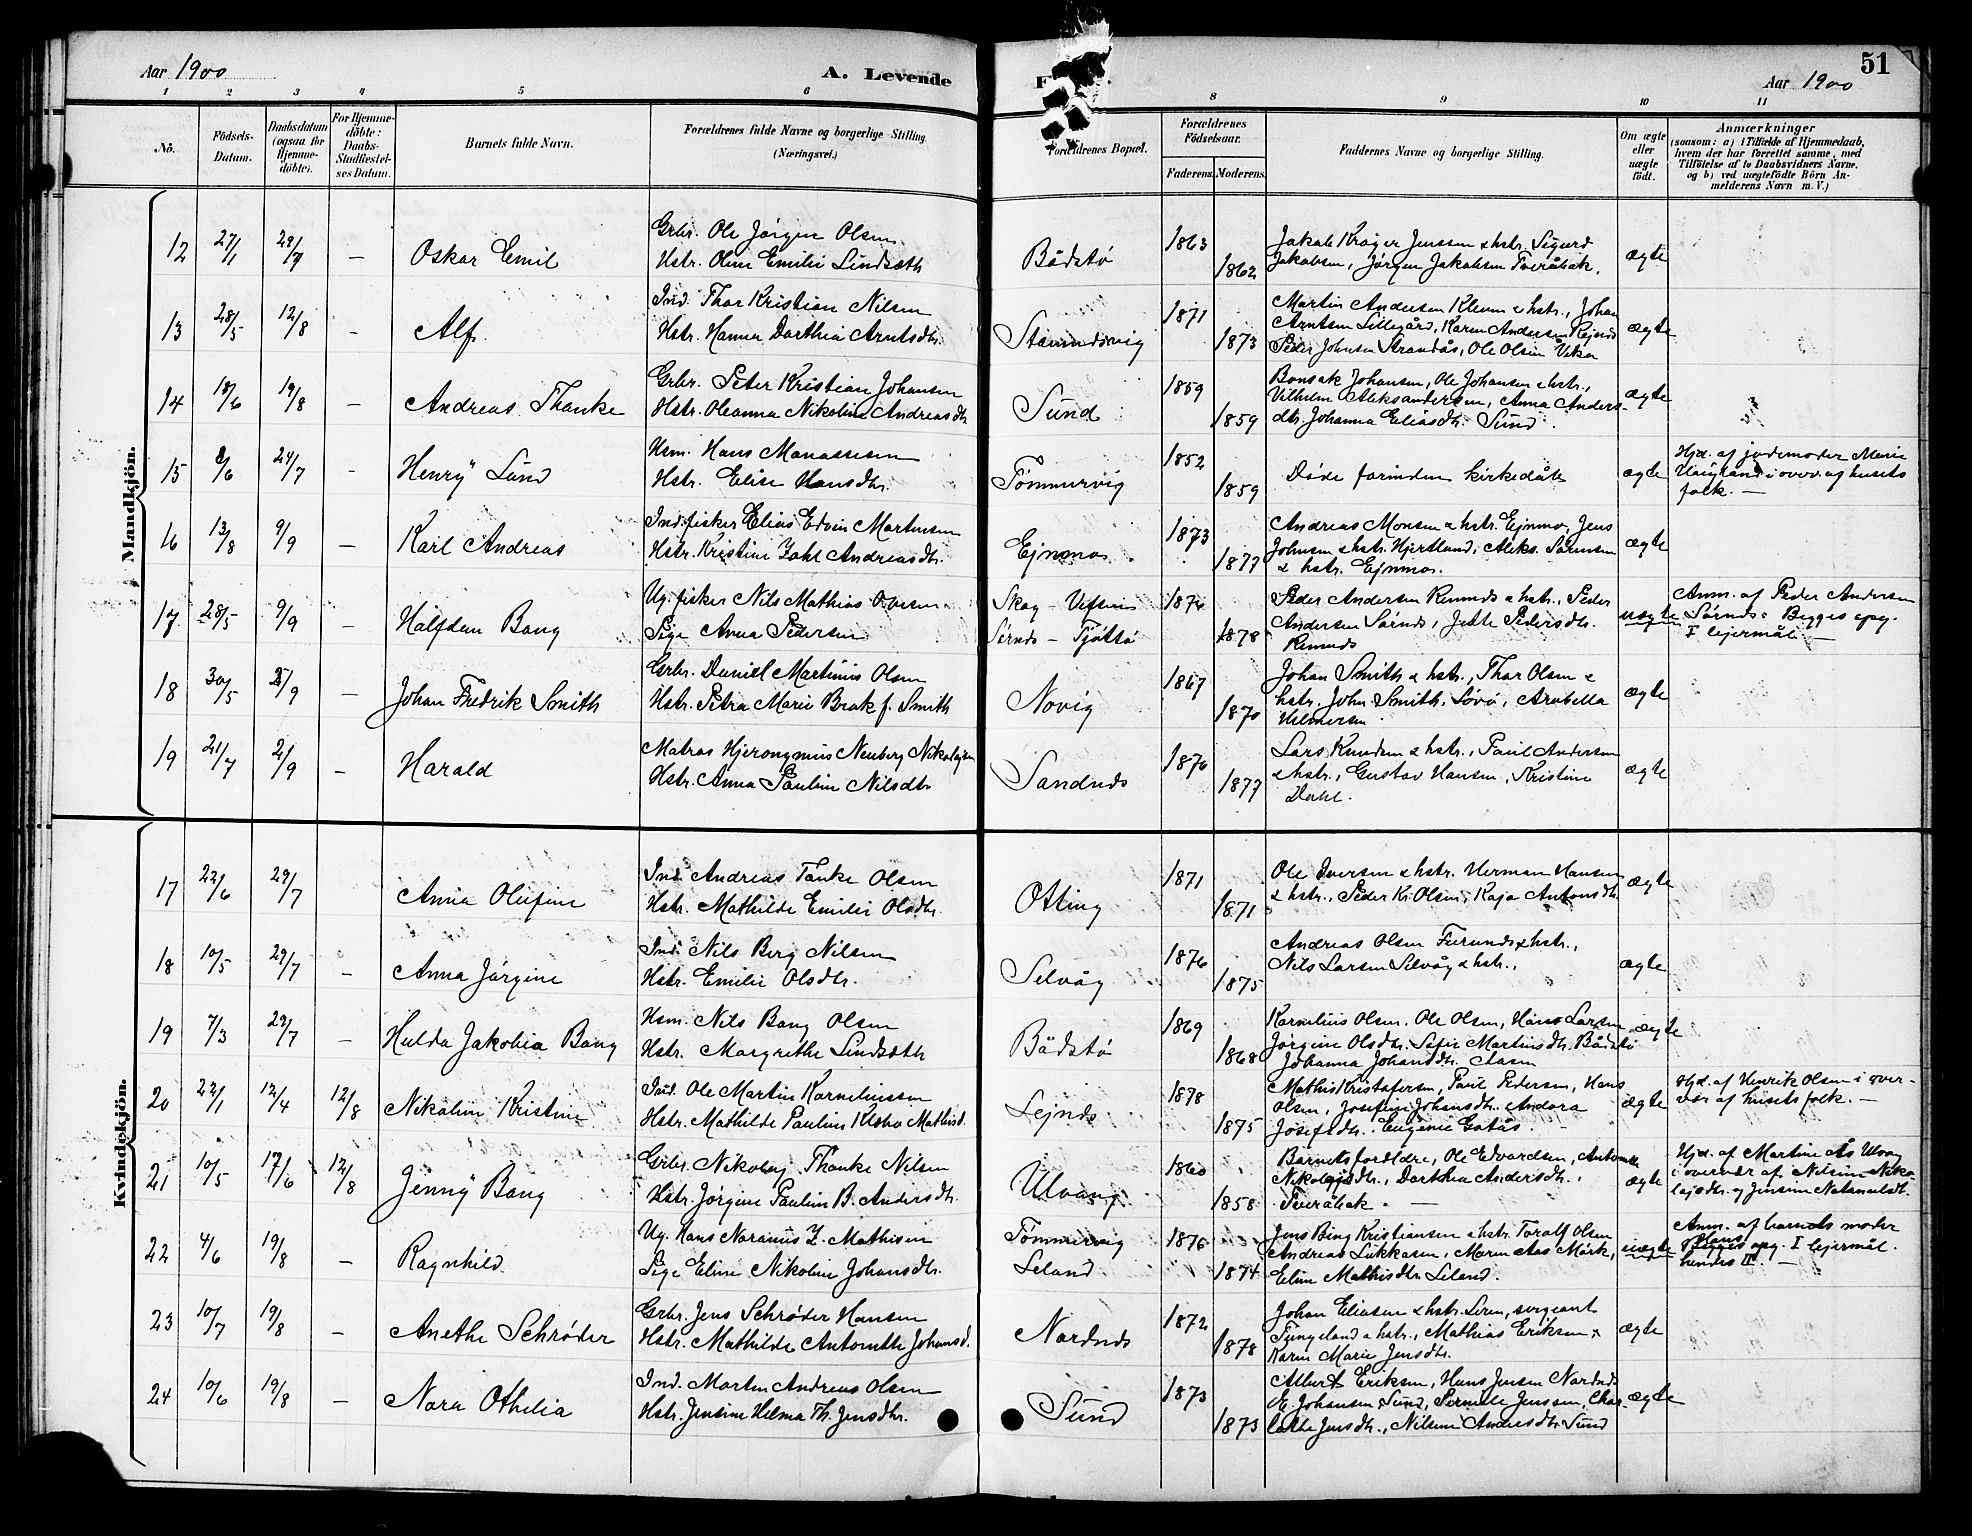 Aar 1900
A. Levende
F
Aar 1900
51
1 2 3 4 5 6 8 9 10 11
No.
Födsels-
Datum.
Daabsdatum
(ogsaa for
Hjemme-
döbte).
For Hjemme-
döbte:
Daabs-
Stadfæstel-
ses Datum.
Barnets fulde Navn.
Forældrenes fulde Navne og borgerlige Stilling.
(Næringsvei.)
Forældrenes Bopæl.
Forældrenes
Födselsaar.
Faderens. Moderens.
Faddernes Navne og borgerlige Stilling.
Om ægte
eller
uægte
födt.
Anmærkninger
(saasom: a) i Tilfælde af Hjemmedaab,
hvem der har forrettet samme, med
Tilföielse af to Daabsvidners Navne,
og b) ved uægtefödte Börn An-
melderens Navn m. V.)
Mandkjön.
12 27/1 29/7 — Oskar Emil
Grbr. Ole Jörgen Olsen
Hstr. Oline Emilie Lindsæth
Bådstö 1863 1862
Jakob Kröger Jenssen & hstr. Sigurd
Jakobsen, Jörgen Jakobsen Tveråbak.
ægte
13 28/5 12/8 - Alf.
Ind. Thor Kristian Nilsen
Hstr. Hanna Dorthea Arntsdtr.
Stamnesvig 1871 1873
Martin Andersen Klevm & hstr., Johan
Arntsen Lillegård, Karen Andersen
Peder Johnsen Strandås, Ole Olsen
ægte
14 18/6 19/8 — Andreas Thanke
Grbr. Peter Kristian Johansen
Hstr. Oleanna Nikoline Andreasdtr
Sund 1859 1859
Bonsak Johansen, Ole Johansen & hstr.,
Vilhelm Aleksandersen, Anna Anders-
dtr. Johanna Eliasdtr. Sund
ægte
15 8/6 24/7 - Henry Lund
Hsm. Hans Manassesen
Hstr. Elise Hansdtr.
Tömmervig 1852 1859
Döde forinden kirkedåb
ægte
Hjd. af jordemoder Marie
Haugland i overv. af husets
folk. —
16 13/8 9/9 — Karl Andreas
Ind. fisker Elias Edvin Martinsen
Hstr. Kristine Zahl Andreasdtr.
Ejnmo. 1873 1877
Andreas Monsen & hstr. Ejnmo, Jens
Johnsen & hstr. Hjertland, Aleks. Sörensen
& hstr. Ejnmo.
ægte
17 28/5 9/9 — Halfdan Bang
Ug. fisker Nils Mathias Olsen
Pige Anna Pedersen
Skog - Vefsen
Sörnes - Tjöttö
1876 1878
Peder Andersen Remnes & hstr., Peder
Andersen Sörnes, Jette Pedersdtr.
Remnes
uægte
Anm. af Peder Andersen
Sörnes. Begges opg.
I lejermål —
18 30/5 2/9 — Johan Fredrik Smith
Grbr. Daniel Martinus Olsen
Hstr. Petra Marie Brok f. Smith
Novig 1867 1870
Johan Smith & hstr., Thor Olsen &
hstr. John Smith, Sövö, Arabella
Helmersen
ægte
19 21/7 2/9 — Harald
Matros Hjeronymus Neuberg Nikolajsen
Hstr. Anna Pauline Nilsdtr
Sandnes 1876 1877
Lars Knudsen & hstr., Paul Andersen
& hstr., Gustav Hansen, Kristine
Dahl.
ægte
Kvindekjön.
17 22/6 29/7 Anna Olufine
Ind. Andreas Tanke Olsen
Hstr. Mathilde Emilie Olsdtr.
Otting 1871 1871
Ole Iversen & hstr. Herman Hansen
& hstr., Peder Kr. Olsen, Kaja Antonsdtr.
ægte
18 10/5 29/7 — Anna Jörgine
Ind. Nils Berg Nilsen
Hstr. Emilie Olsdtr.
Selvåg 1876 1875
Andreas Olsen Furunes & hstr.,
Nils Larsen Selvåg & hstr.,
ægte
19 7/3 29/7 — Hulda Jakobia Bang
Hsm. Nils Bang Olsen
Hstr. Margrethe Lindsæth
Bådstö 1869 1868
Kornelius Olsen, Ole Olsen, Hans Larsen
Jörgine Olsdtr. Martinsdtr. Bådstö
Johanna Johansdtr.
ægte
20 22/1 12/4 12/8 Nikoline Kristine
Ind. Ole Martin Korneliussen
Hstr. Mathilde Pauline Mathisd.
Lejnes 1878 1875
Mathis Kristofersen, Paul Pedersen, Hans
Olsen, Josefine Johansdtr. Andora
Josefsdtr. Eugenie Gotås.
ægte
Hjd. af Henrik Olsen i over-
vær af husets folk. —
21 10/5 17/6 12/8 Jenny Bang
Grbr. Nikolaj Thanke Nilsen
Hstr. Jörgine Pauline B. Andersdtr.
Ulvang 1860 1858
Barnets forældre, Ole Edvardsen, Antonette
Nikolajsdtr., Dorthea Andersdtr.,
Tveråbak —
ægte
Hjd. af Martine Ås Ulvang
i overvær af Nilsine Niko-
lajsdtr. og Jensine Natanaelsdtr.
22 4/6 19/8 — Ragnhild
Ug. Hans Noranus Z. Mathisen
Pige Eline Nikoline Johansdtr.
Tömmervig
Leland
1876 1874
Jens Bing Kristiansen & hstr. Toralf Olsen
Andreas Lukkasen, Maren Aas Mörk,
Eline Mathisdtr. Leland.
uægte
Anm. af barnets moder
hans
Begges opg. I lejermål.
hendes II. —
23 10/7 19/8 — Anethe Schröder
Grbr. Jens Schröder Hansen
Hstr. Mathilde Antonette Johansd.
Nordnes 1872 1878
Johan Eliasen & hstr. Leren, sergeant
Tungeland & hstr., Mathias Eriksen &
Karen Marie Jensdtr.
ægte
24 10/6 19/8 — Nora Othelia
Ind. Morten Andreas Olsen
Hstr. Jensine Helma Th. Jensdtr.
Sund 1873 1873
Albert Eriksen, Hans Jensen Nordnes
E. Johansen Sund, Pernille Jenssen, Char-
lotte Jensdtr., Nilsine Andersdtr. Sund
ægte